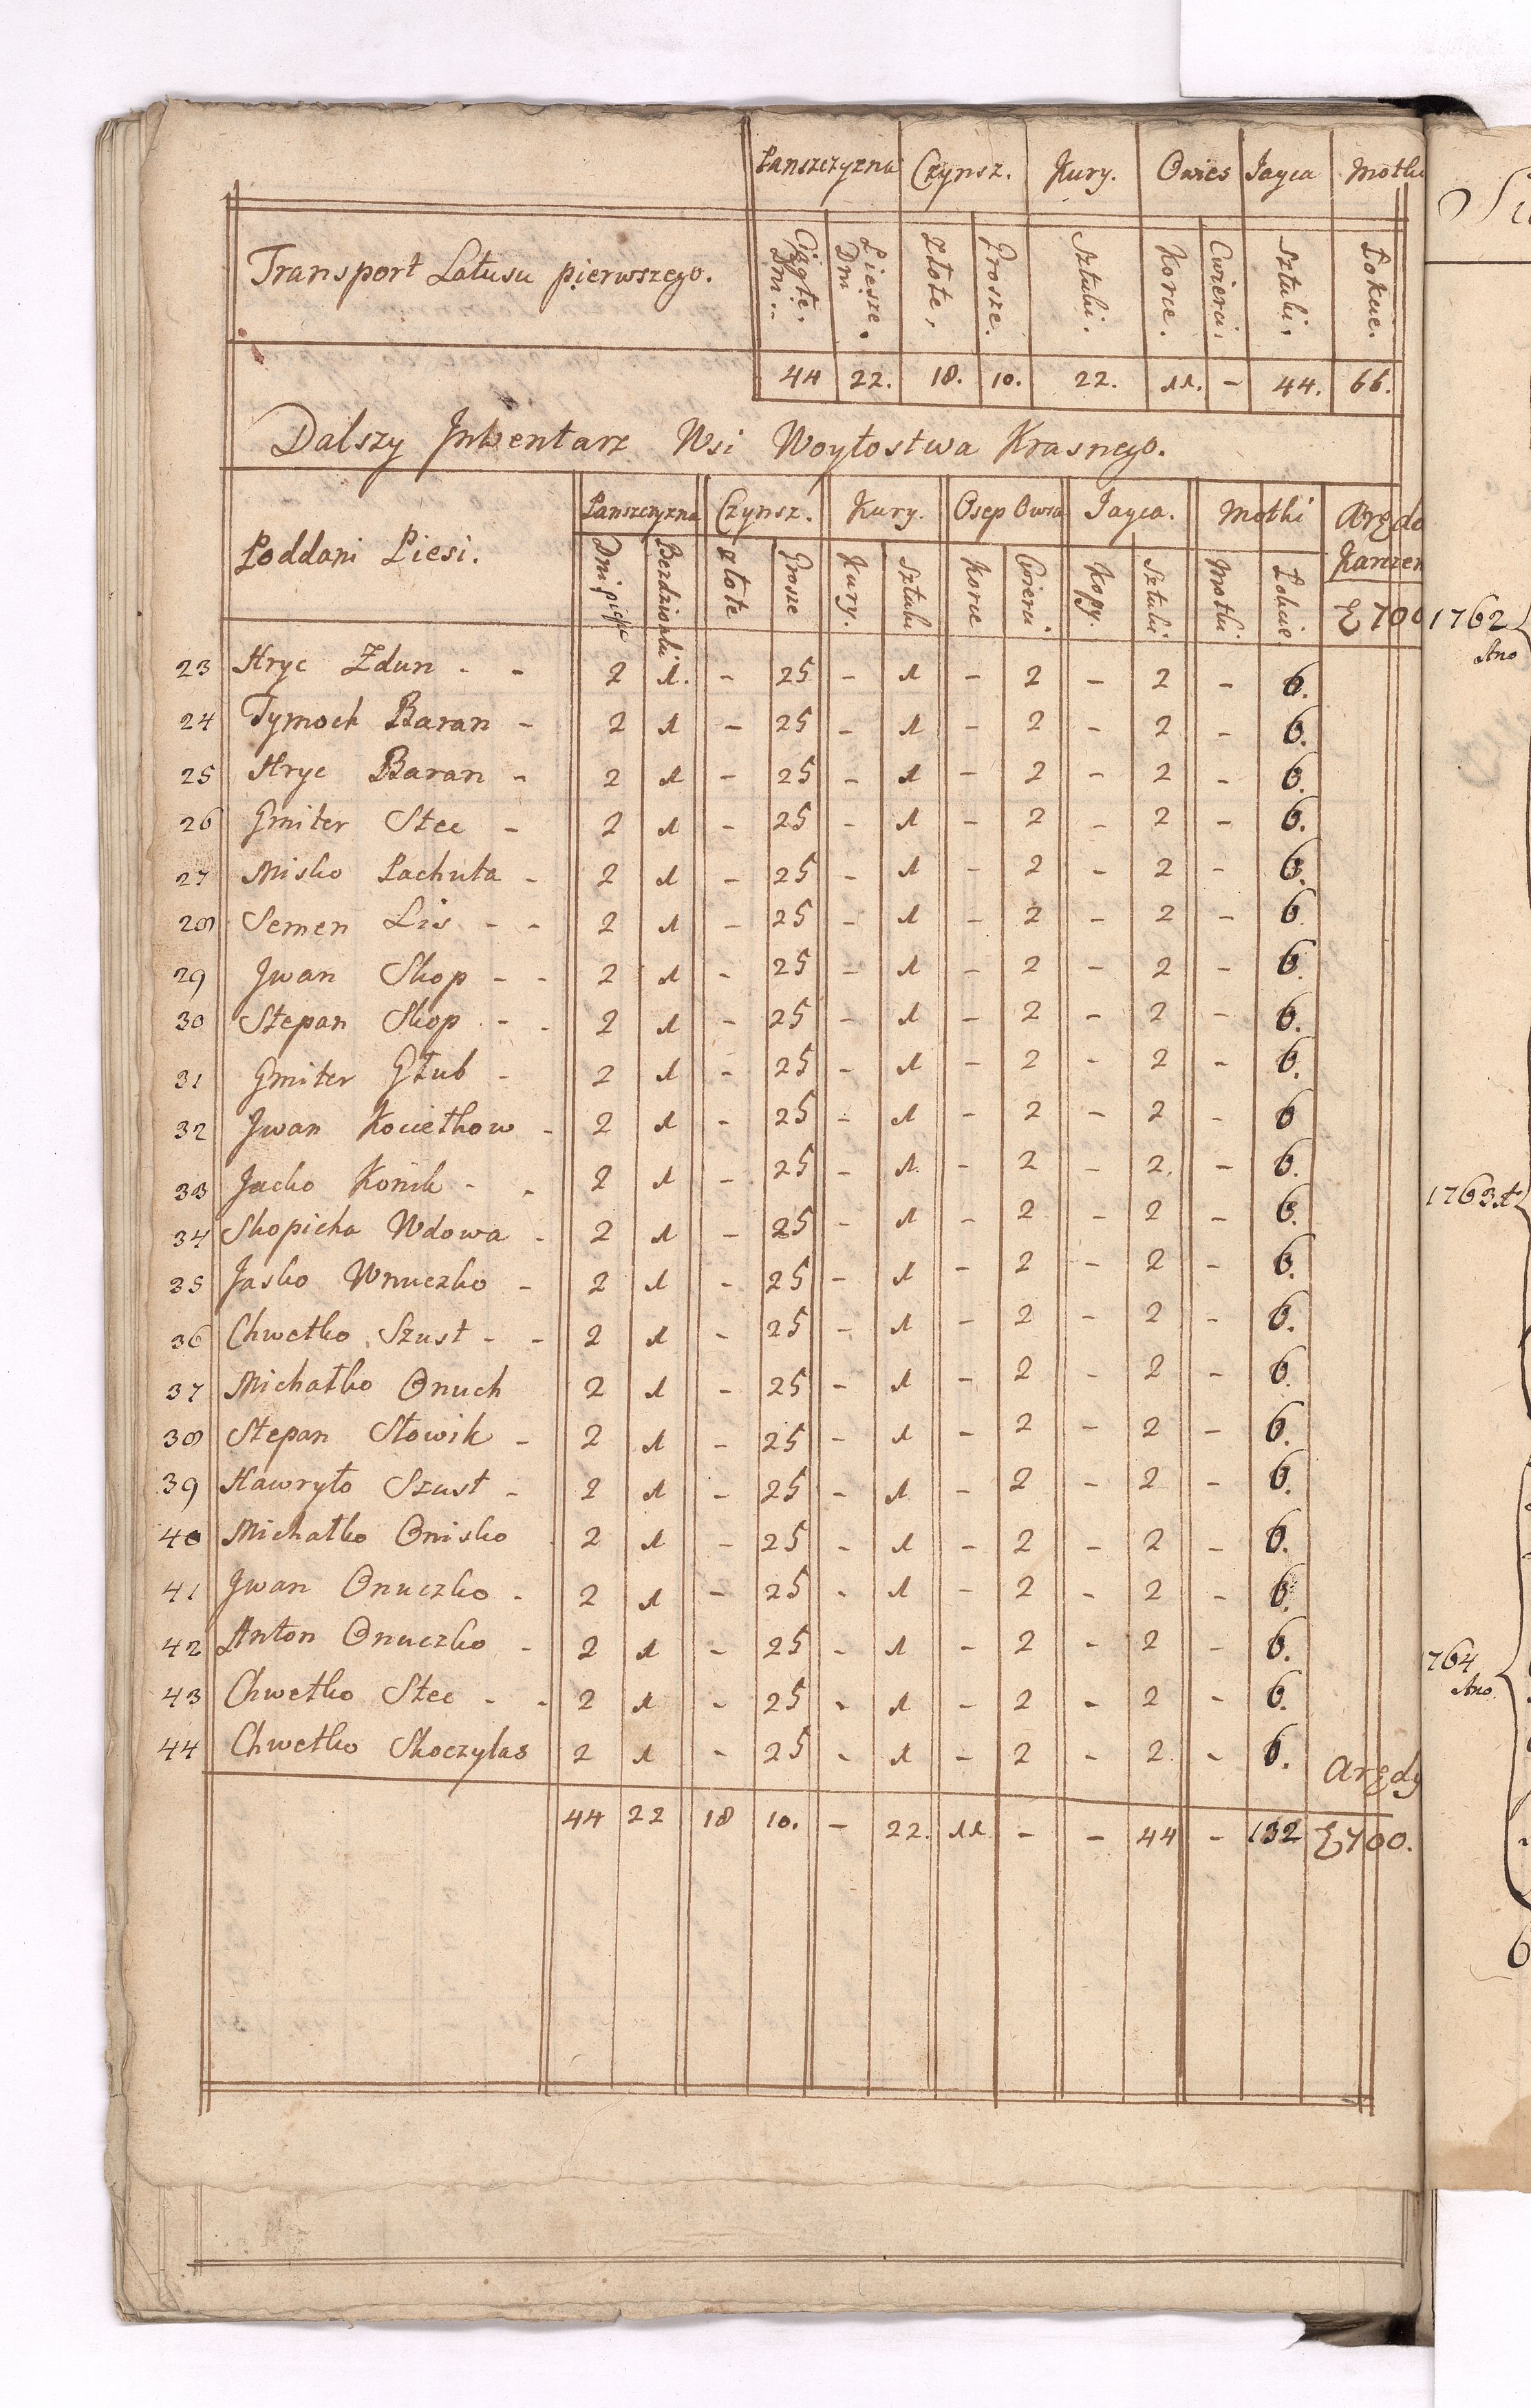 Panszczyzna Czynsz. Kury. Owies Jayca Motki
Transport Latusu pierwszego. Ciągłe. Dni Piesze. Dni Złote. Grosze. Sztuki. Korce. Cwierci. Sztuki. Łokcie.
44 22. 18. 10. 22. 11. - 44. 66.
Dalszy Inwentarz Wsi Woytostwa Krasnego.
Panszczyzna Czynsz. Kury. Osep Owsa Jayca. Motki
Poddani Piesi. Dni piesze złote Grosze Kury. Sztuki Korce Cwierci. Kopy. Sztuki Motki Łokcie
700
23 Hryc Zdun - - 2 1. - 25 - 1 - 2 - 2 - 6.
24 Tymoch Baran - 2 1 - 25 - 1 - 2 - 2 - 6.
25 Hryc Baran - 2 1 - 25 - 1 - 2 - 2 - 6.
26 Gmiter Stec - 2 1 - 25 - 1 - 2 - 2 - 6.
27 Misko Pachuta - 2 1 - 25 - 1 - 2 - 2 - 6.
28 Semen Lis - - 2 1 - 25 - 1 - 2 - 2 - 6
29 Jwan Skop - - 2 1 - 25 - 1 - 2 - 2 - 6.
30 Stepan Skop - - 2 1 - 25 - 1 - 2 - 2 - 6.
31 Gmiter Głub - 2 1 - 25 - 1 - 2 - 2 - 6.
32 Jwan Kocietkow - 2 1 - 25 - 1 - 2 - 2 - 6
33 Jacko Konik - - 2 1 - 25 - 1 - 2 - 2. - 6.
34 Skopicha Wdowa - 2 1 - 25 - 1 - 2 - 2 - 6.
35 Jasko Wnuczko - 2 1 - 25 - 1 - 2 - 2 - 6.
36 Chwetko Szust - - 2 1 - 25 - 1 - 2 - 2 - 6.
37 Michałko Onuch 2 1 - 25 - 1 - 2 - 2 - 6.
38 Stepan Słowik - 2 1 - 25 - 1 - 2 - 2 - 6.
39 Hawryło Szust - 2 1 - 25 - 1 - 2 - 2 - 6.
40 Michałko Onisko 2 1 - 25 - 1 - 2 - 2 - 6.
41 Jwan Onuczko - 2 1 - 25 - 1 - 2 - 2 - 6.
42 Anton Onuczko - 2 1 - 25 - 1 - 2 - 2 - 6.
43 Chwetko Stec - - 2 1 - 25 - 1 - 2 - 2 - 6.
44 Chwetko Skoczylas 2 1 - 25 - 1 - 2 - 2 - 6.
Arędy
44 22 18 10. - 22. 11 - - 44 - 132 700.
1762
Ano
1763
764
Ano